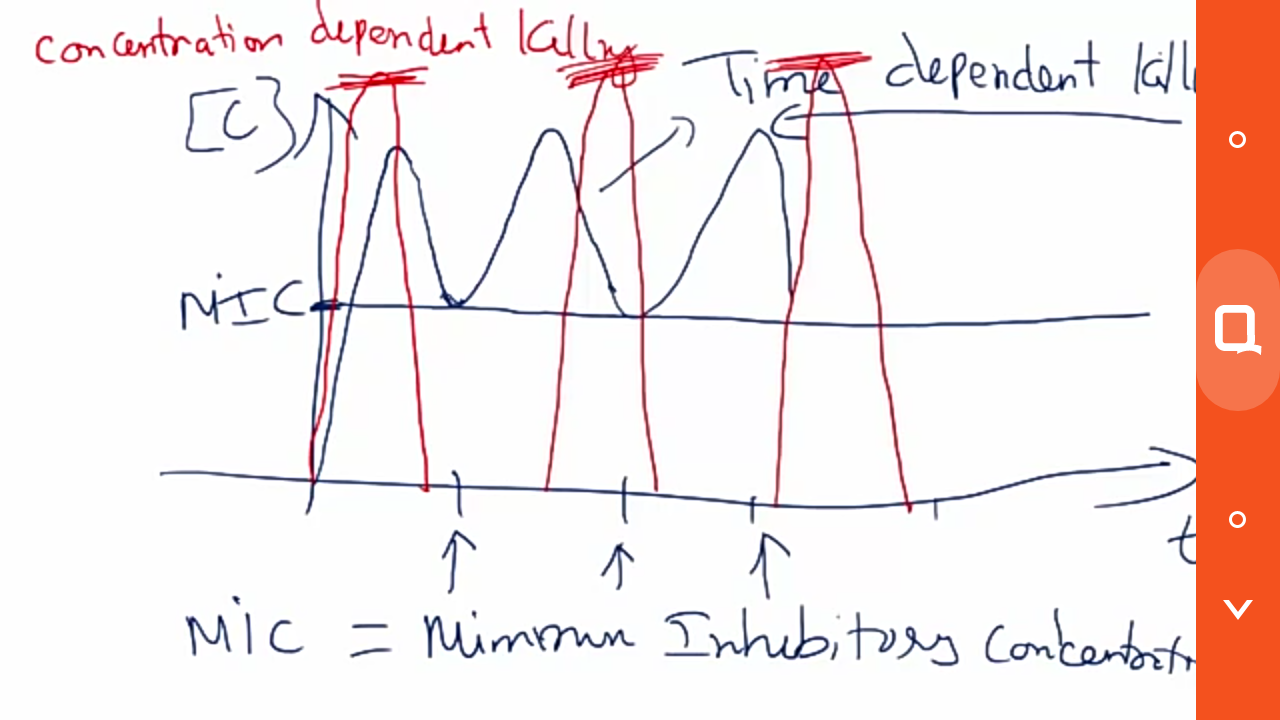 concentration dependent killing
Time dependent kill
[C]
MIC
t
MIC = Minimum Inhibitory Concentrat